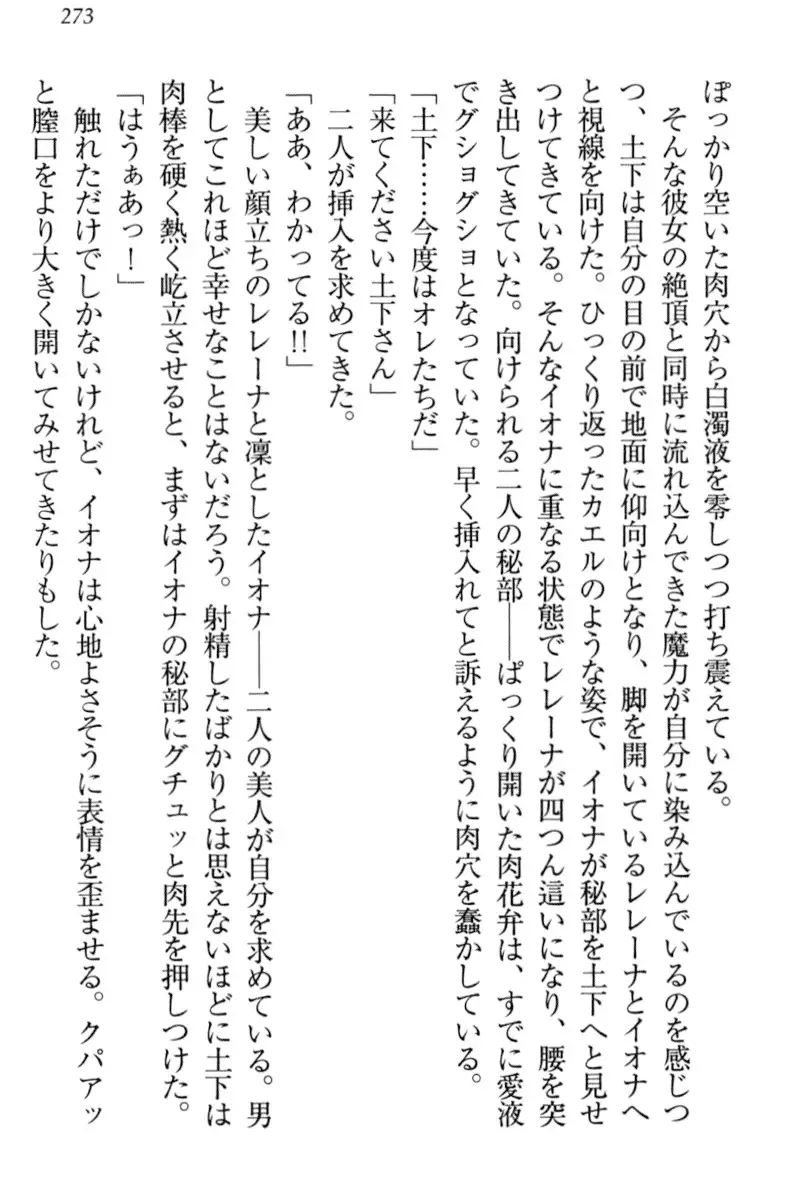 273
ぽっかり空いた肉穴から白濁液を零しつつ打ち震えている。
そんな彼女の絶頂と同時に流れ込んできた魔力が自分に染み込んでいるのを感じつ
つ、土下は自分の目の前で地面に仰向けとなり、脚を開いているレレーナとイオナへ
と視線を向けた。ひっくり返ったカエルのような姿で、イオナが秘部を土下へと見せ
つけてきている。そんなイオナに重なる状態でレレーナが四つん這いになり、腰を突
き出してきていた。向けられる二人の秘部――ぱっくり開いた肉花弁は、すでに愛液
でグショグショとなっていた。早く挿入れてと訴えるように肉穴を蠢かしている。
「土下……今度はオレたちだ」
「来てください土下さん」
二人が挿入を求めてきた。
「ああ、わかってる!!」
美しい顔立ちのレレーナと凛としたイオナ――二人の美人が自分を求めている。男
としてこれほど幸せなことはないだろう。射精したばかりとは思えないほどに土下は
肉棒を硬く熱く屹立させると、まずはイオナの秘部にグチュッと肉先を押しつけた。
「はうぁあっ！」
触れただけでしかないけれど、イオナは心地よさそうに表情を歪ませる。クパアッ
と膣口をより大きく開いてみせてきたりもした。